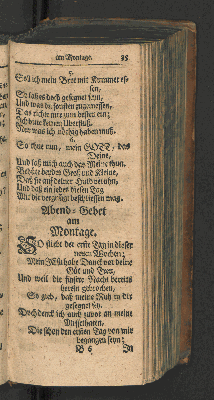 am Montage. 35
5.
Soll ich mein Brot mit Kummer es-
sen,
So laß es doch gesegnet seyn,
Und was du sonsten zugemessen,
Das richte nur zum besten ein;
Ich bitte keinen Überfluß,
Nur was ich nöthig haben muß.
6.
So thue nun, mein GOTT, das
Deine,
Und laß mich auch das Meine thun,
Behüte beydes Groß und Kleine,
Daß sie auf deiner Huld beruhn,
Und daß ein jedes diesen Tag
Mit dir vergnügt beschliessen mag.
Abend-Gebet
am
Montage.
SO steht der erste Tag in dieser
neuen Wochen;
Mein JEsu habe Danck vor deine
Güt und Treu,
Und weil die finstre Nacht bereits
herein gebrochen,
So gieb, daß meine Ruh in dir
gesegnet sey.
Doch denck ich auch zuvor an meine
Missethaten,
Die schon den ersten Tag von mir
begangen seyn;
B 6 In